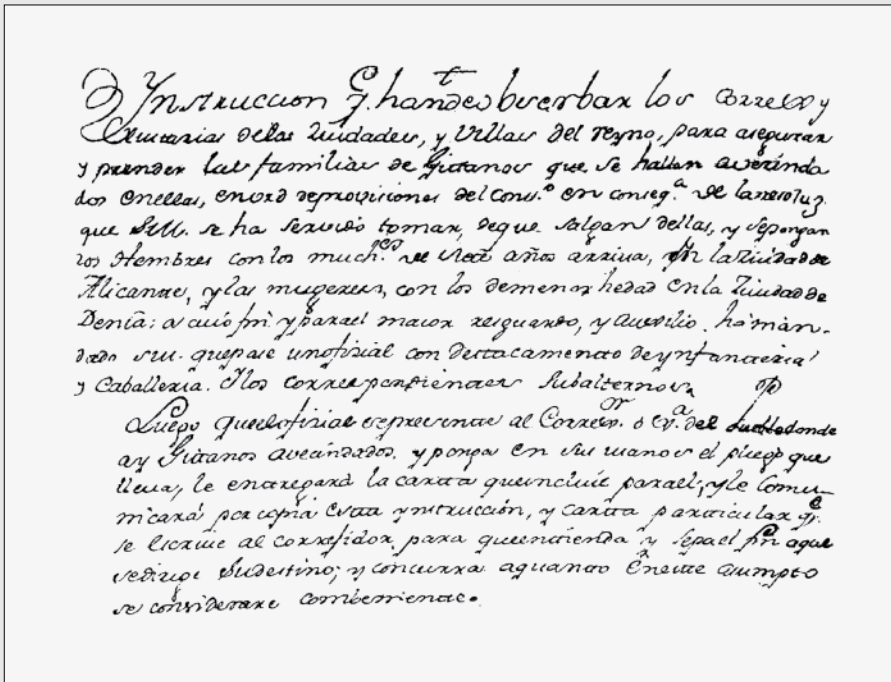 Ynstruccion q. hande obserbar los Correxrs y
Xusticias delas Ziudades, y Villas del reyno, para asegurar
y prender las familias de Gitanos que se hallan avezinda
dos enellas, envrd deprovisiones del Cons.o en conseq.a de laresoluz.
que S.M. se ha servido tomar, deque salgan dellas, y sepongan
los Hombres con los much.os de siete años arriva, en laZiudadde
Alicante, y las mugeres, con los demenor hedad enla Ziudadde
Denia: a cuio fin y parael maior resguardo, y auxilio. ha man-
dado S.M. quepase unofizial con destacamento deynfanteria
y Caballeria. y los correspondientes subalternos
Luego queelofizial sepresente al Correxor. o Xa. del Pueblo donde
ay Gitanos avecindados, y ponga en sus manos el pliego que
lleva, le entregará la carta queincluie parael, y le Comu-
nicará por copia esta ynstrucción, y carta particular qe.
se escrive al corregidor, para queentienda y sepael fin aque
sedirige Sudestino; y concurra aquanto Eneste asumpto
se considerare combeniente.